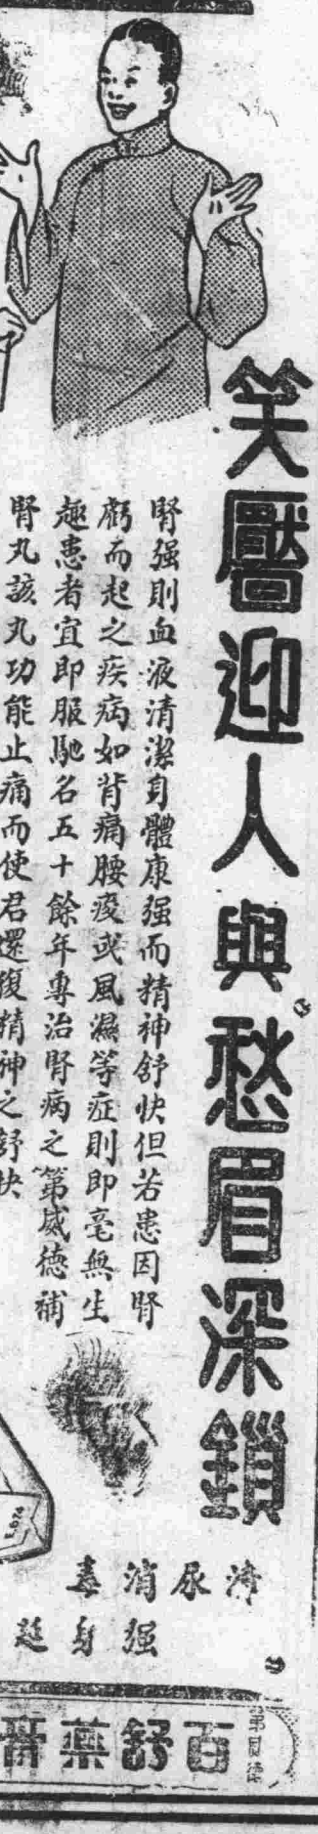 笑靨迎人與愁眉深鎖
腎强則血液清潔身體康强而精神舒快但若患因腎
虧而起之疾病如背痛腰痠或風濕等症則即毫無生
趣患者宜即服馳名五十餘年專治腎病之第威德補
腎丸該丸功能止痛而使君還復精神之舒快
清尿消毒
强身延
第威德
百舒藥膏